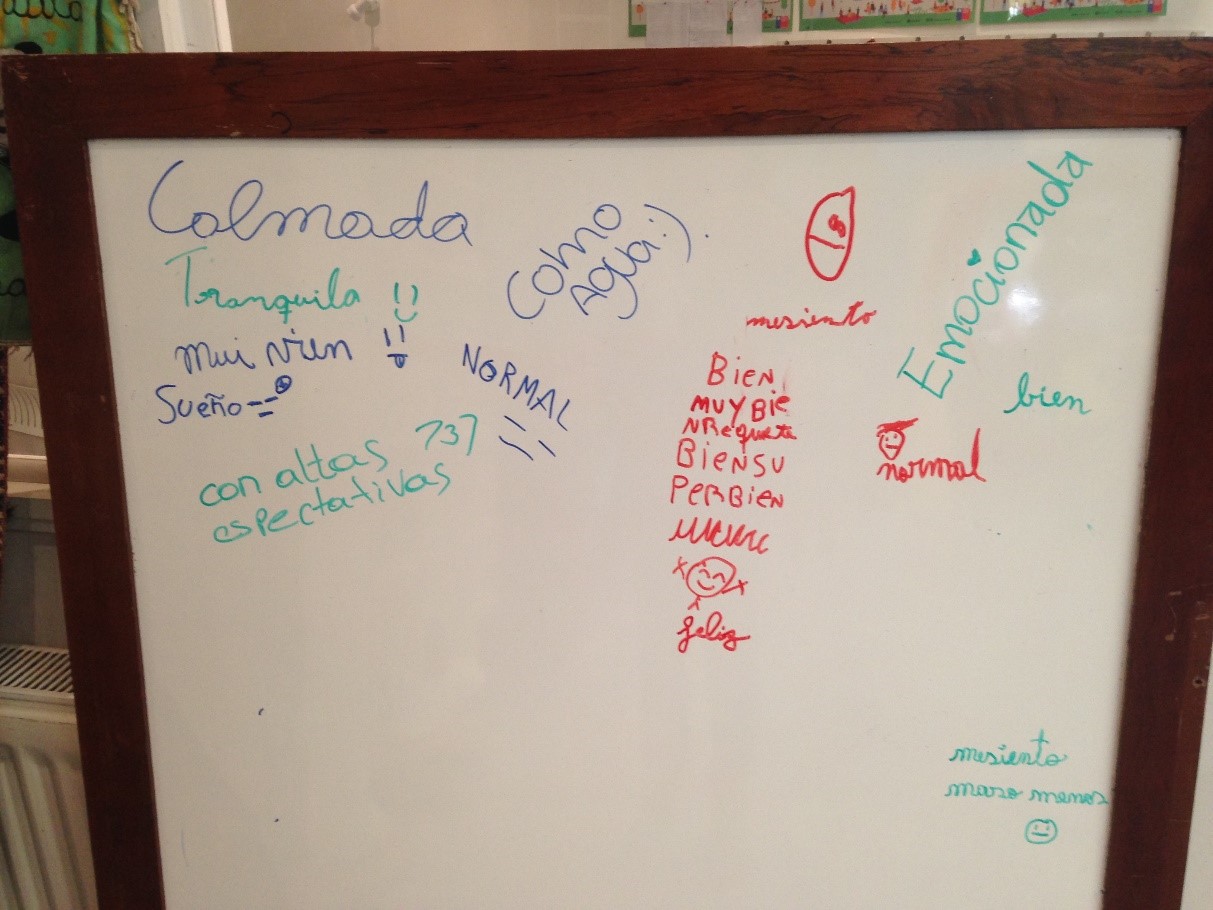 Calmada
Tranquila
mui vien
Sueño
con altas 737
espectativas
NORMAL
COMO
AGUA:).
mesiento
BiEN
MUYBIE
NRequete
BiENSU
PERBiEN
feliz
Emocionada
bien
normal
mesiento
maso menos